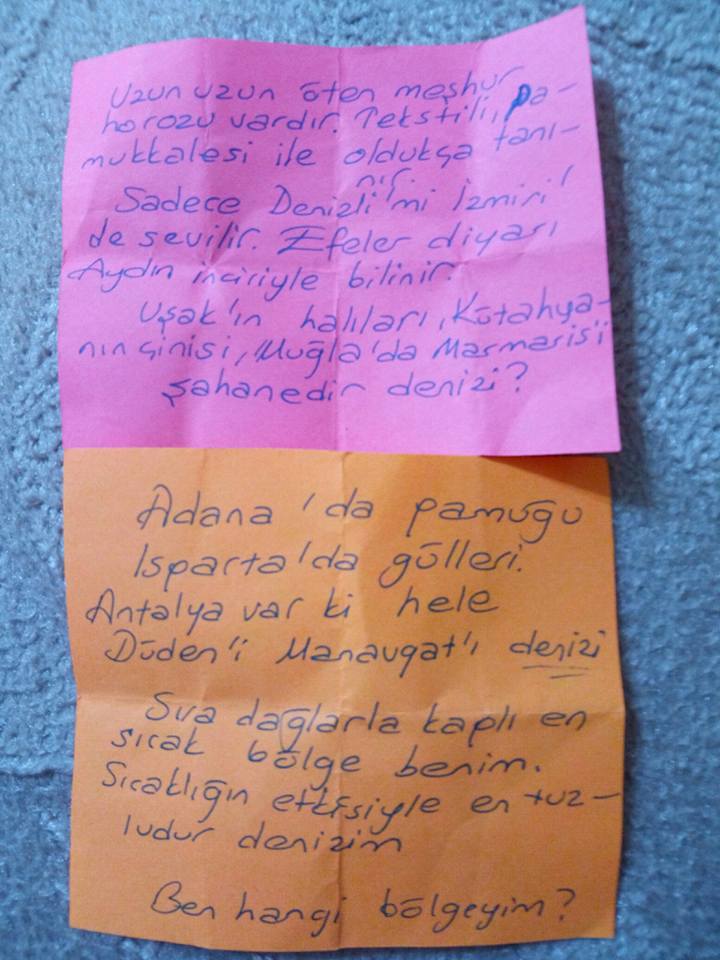 Uzun uzun öten meşhur
horozu vardır. Tekstili, pa-
mukkalesi ile oldukça tanı-
nır.
Sadece Denizli'mi İzmiri'
de sevilir. Efeler diyarı
Aydın inciriyle bilinir.
Uşak'ın halıları, Kütahya-
nın çinisi, Muğla'da Marmaris'i
şahanedir denizi?
Adana'da pamuğu
Isparta'da gülleri.
Antalya var ki hele
Düden'i Manavgat'ı denizi
Sıra dağlarla kaplı en
sıcak bölge benim.
Sıcaklığın etkisiyle en tuz-
ludur denizim
Ben hangi bölgeyim?